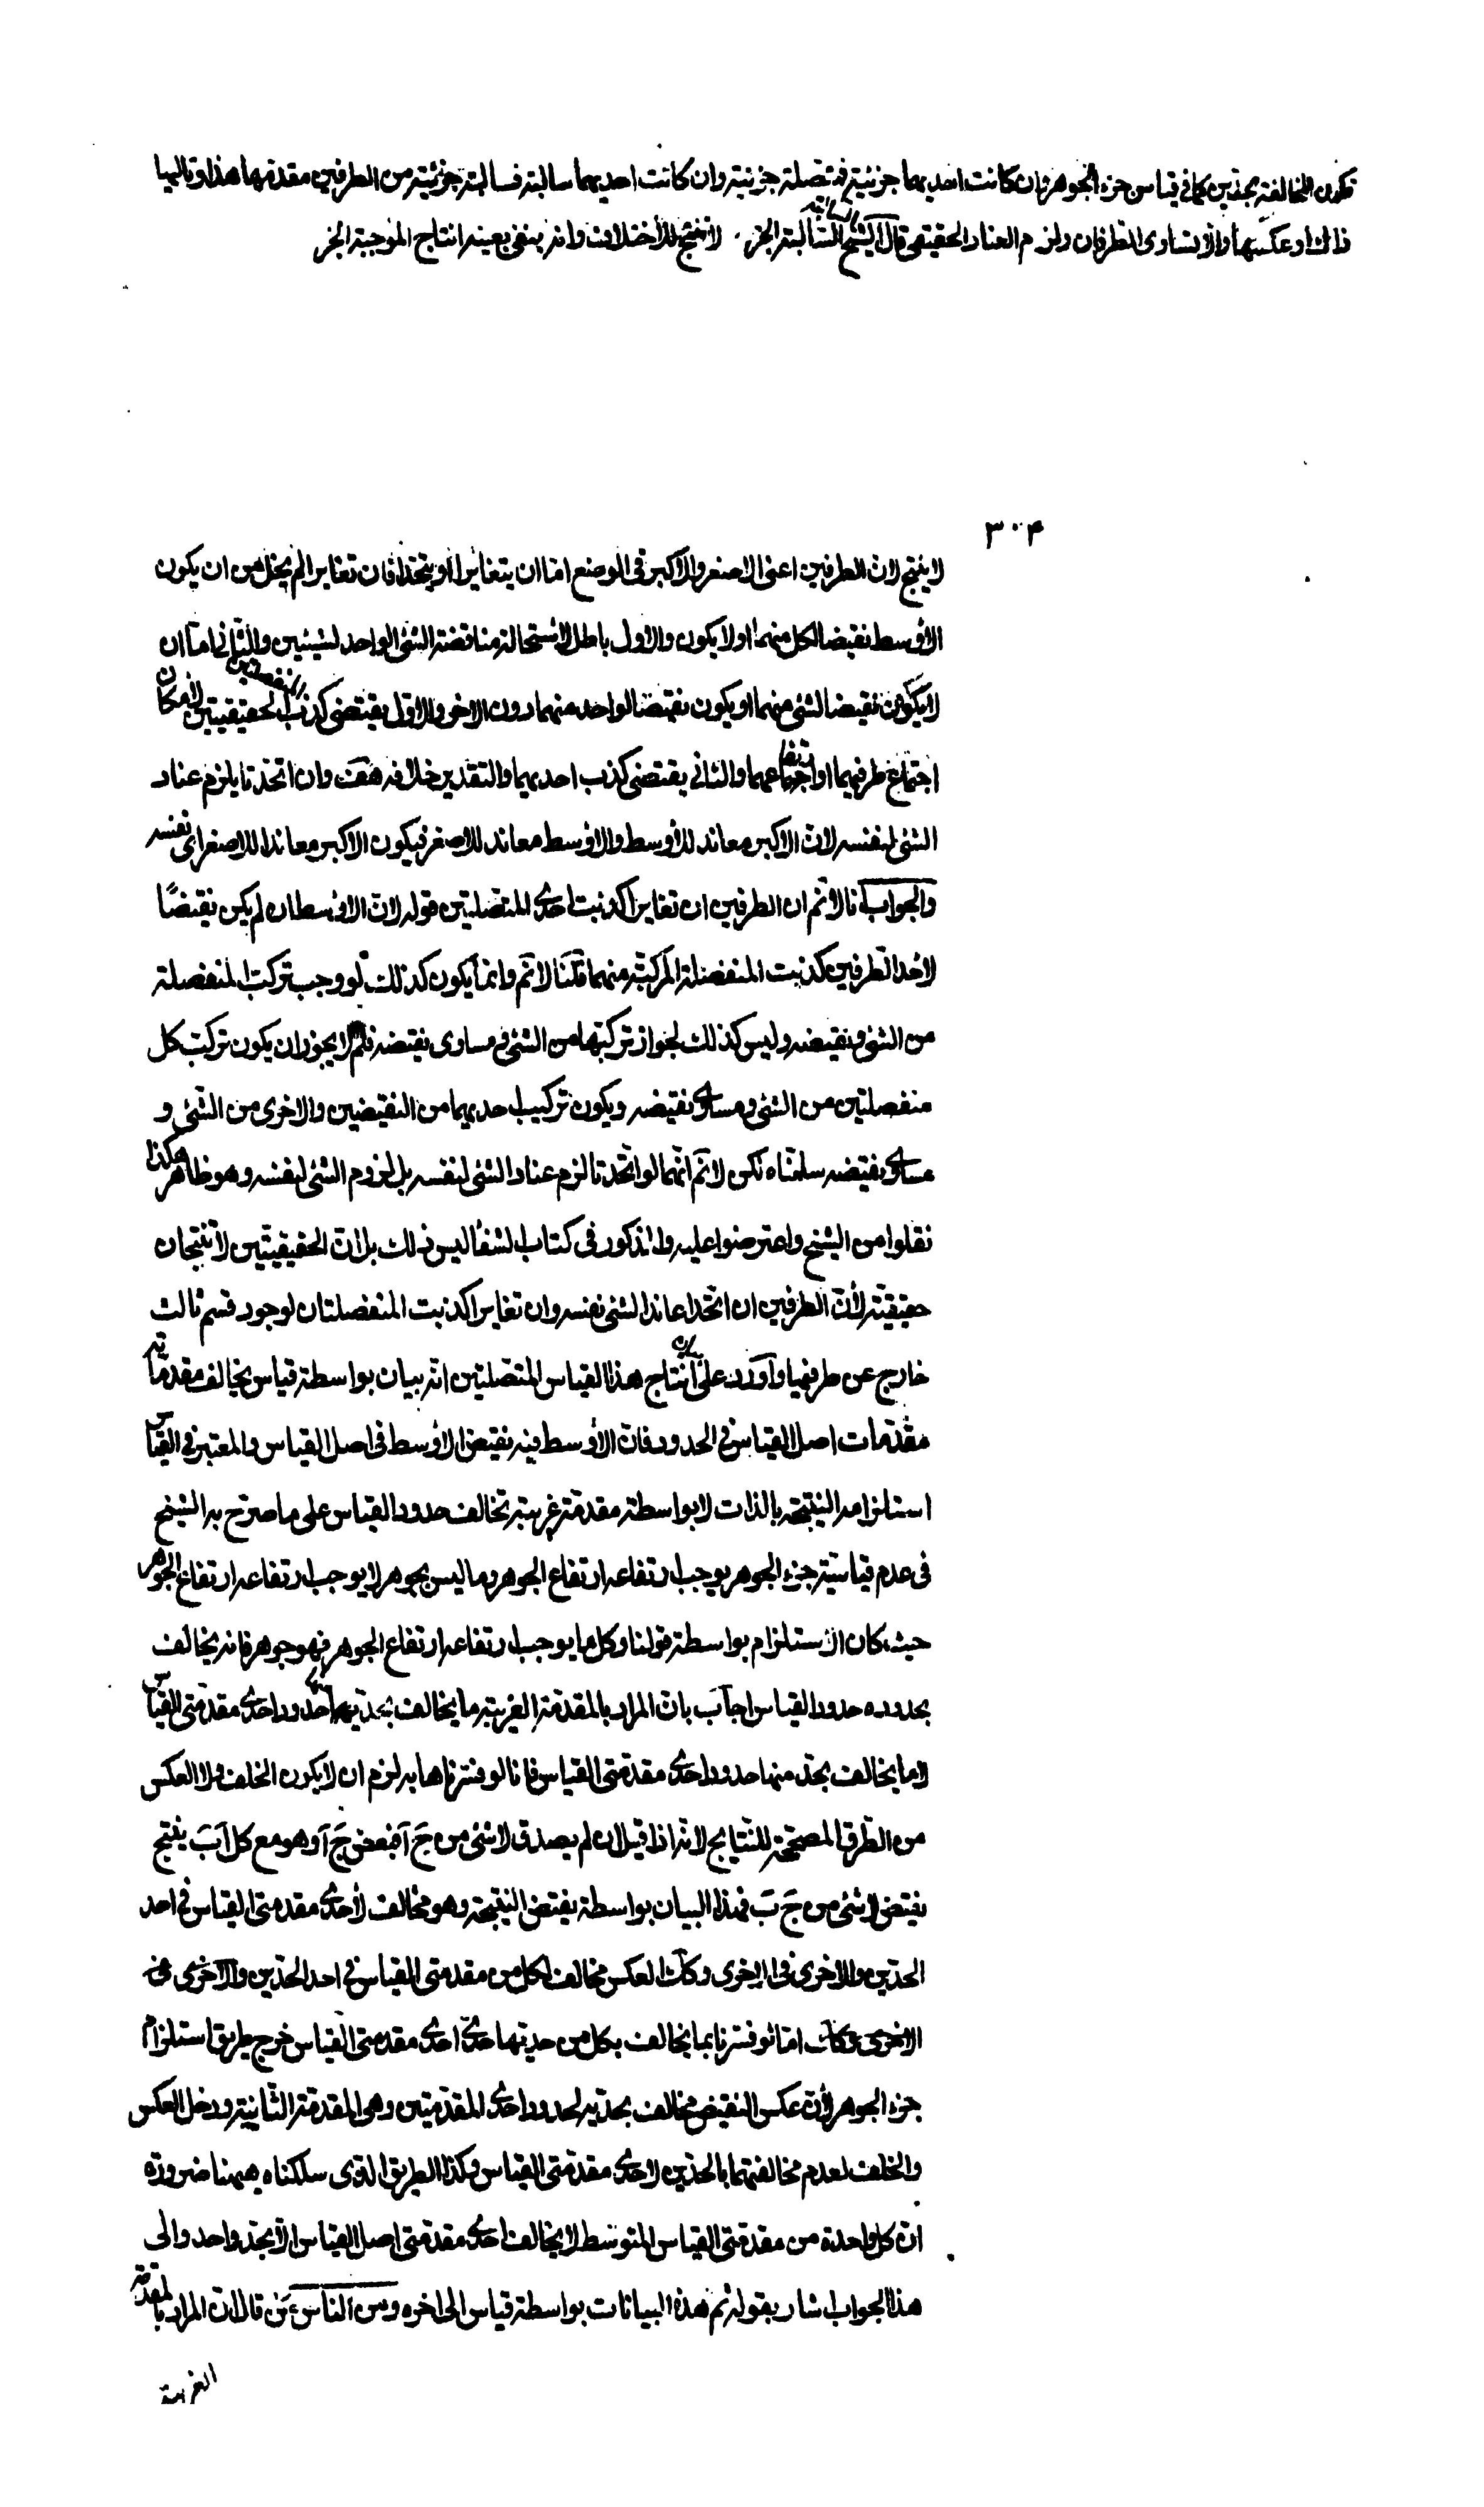 تكون المخالفة بحدين كما في قياس جزء الجوهر فان كانت احديهما جزئية فمتصلة جزئية وان كانت احديهما سالبة فسالبة جزئية من الطرفين مقدمها هذا وتاليها
ذاك او عكسهما والا لتساوى الطرفان ولزم العناد الحقيقى قال الشيخ السالبة الجز لا تنتج للاختلاف وانه بنفى بعينه انتاج الموجبة الجز
٣٠۴
لا ينتج لان الطرفين اعنى الاصغر والاكبر فى الوضع اما ان يتغايرا او يتحدا فان تغايرا لم يخل من ان يكون
الاوسط نقيضا لكل منهما او لا يكون والاول باطل لاستحالة مناقضة الشئ الواحد لشيئين والثانى اما ان
لا يكون نقيضا لشئ منهما او يكون نقيضا لواحد منهما دون الاخر والاول يقتضى كذب المنفصلتين الحقيقيتين لامكان
اجتماع طرفيهما او ارتفاعهما والثانى يقتضى كذب احديهما والتقدير خلافه هف وان اتحدتا يلزم عناد
الشئ لنفسه لان الاكبر معاند للاوسط والاوسط معاند للاصغر فيكون الاكبر معاندا للاصغر اى نفسه
والجواب انا لا نم ان الطرفين ان تغايرا كذبت احدى المتصلتين قوله لان الاوسط ان لم يكن نقيضا
لاحد الطرفين كذبت المنفصلة المركبة منهما قلنا لا نم وانما يكون كذلك لو وجب تركب المنفصلة
من الشئ ونقيضه وليس كذلك لجواز تركبها من الشئ ومساوى نقيضه فلم لا يجوز ان يكون تركب كل
منفصلتين من الشئ ومساوى نقيضه ويكون تركيب احديهما من النقيضين والاخرى من الشئ و
مساوى نقيضه سلمناه لكن لا نم انهما لو اتحدتا لزم عناد الشئ لنفسه بل لزوم الشئ لنفسه وهو ظاهر هكذا
نقلوا من الشيخ واعترضوا عليه والمذكور فى كتاب الشفا ليس ذلك بل ان الحقيقيتين لا تنتجان
حقيقية لان الطرفين ان اتحدا عاند الشئ نفسه وان تغايرا كذبت المنفصلتان لوجود قسم ثالث
خارج عن طرفيها واورد على بيان انتاج هذا القياس المتصلتين انه بيان بواسطة قياس يخالف مقدماته
مقدمات اصل القياس فى الحدود فان الاوسط فيه نقيض الاوسط فى اصل القياس والمعتبر فى القياس
استلزامه النتيجة بالذات لا بواسطة مقدمة غريبة تخالف حدود القياس على ما صرح به الشيخ
فى عدم قياسية جزء الجوهر يوجب ارتفاعه ارتفاع الجوهر وما ليس بجوهر لا يوجب ارتفاعه ارتفاع الجوهر
حيث كان الاستلزام بواسطة قولنا وكل ما يوجب ارتفاعه ارتفاع الجوهر فهو جوهر فانه يخالف
بحدوده حدود القياس اجاب بان المراد بالمقدمة الغريبة ما يخالف بحديها حدود احدى مقدمتى القياس
لا ما يخالف بحد منها حدود احدى مقدمتى القياس فانا لو فسرناها به لزم ان لا يكون الخلف ولا العكس
من الطرق المصححة للنتايج لانه اذا قيل ان لم يصدق لا شئ من ج ا فبعض ج ا وهو مع كل ا ب ينتج
نقيض لا شئ من ج ب فهذا البيان بواسطة نقيض النتيجة وهو مخالف لاحدى مقدمتى القياس فى احد
الحدين وللاخرى فى الاخرى وكان العكس مخالف لكل من مقدمتى القياس فى احد الحدين والاخرى فى
الاخرى وكان اما لو فسرنا بما يخالف بكل من حديها حدى احدى مقدمتى القياس خرج طريق استلزام
جزء الجوهر لان عكس النقيض مخالف بحديه لحدود احدى المقدمتين وهى المقدمة الثانية ودخل العكس
والخلف لعدم مخالفتهما بالحدين لاحدى مقدمتى القياس وكذا الطريق الذى سلكناه ههنا ضرورة
ان كل واحدة من مقدمتى القياس المتوسط لا يخالف احدى مقدمتى اصل القياس الا بحد واحد والى
هذا الجواب اشار بقوله ثم هذه البيانات بواسطة قياس الى اخره ومن الناس من قال ان المراد بالمقدمة
الغريبة